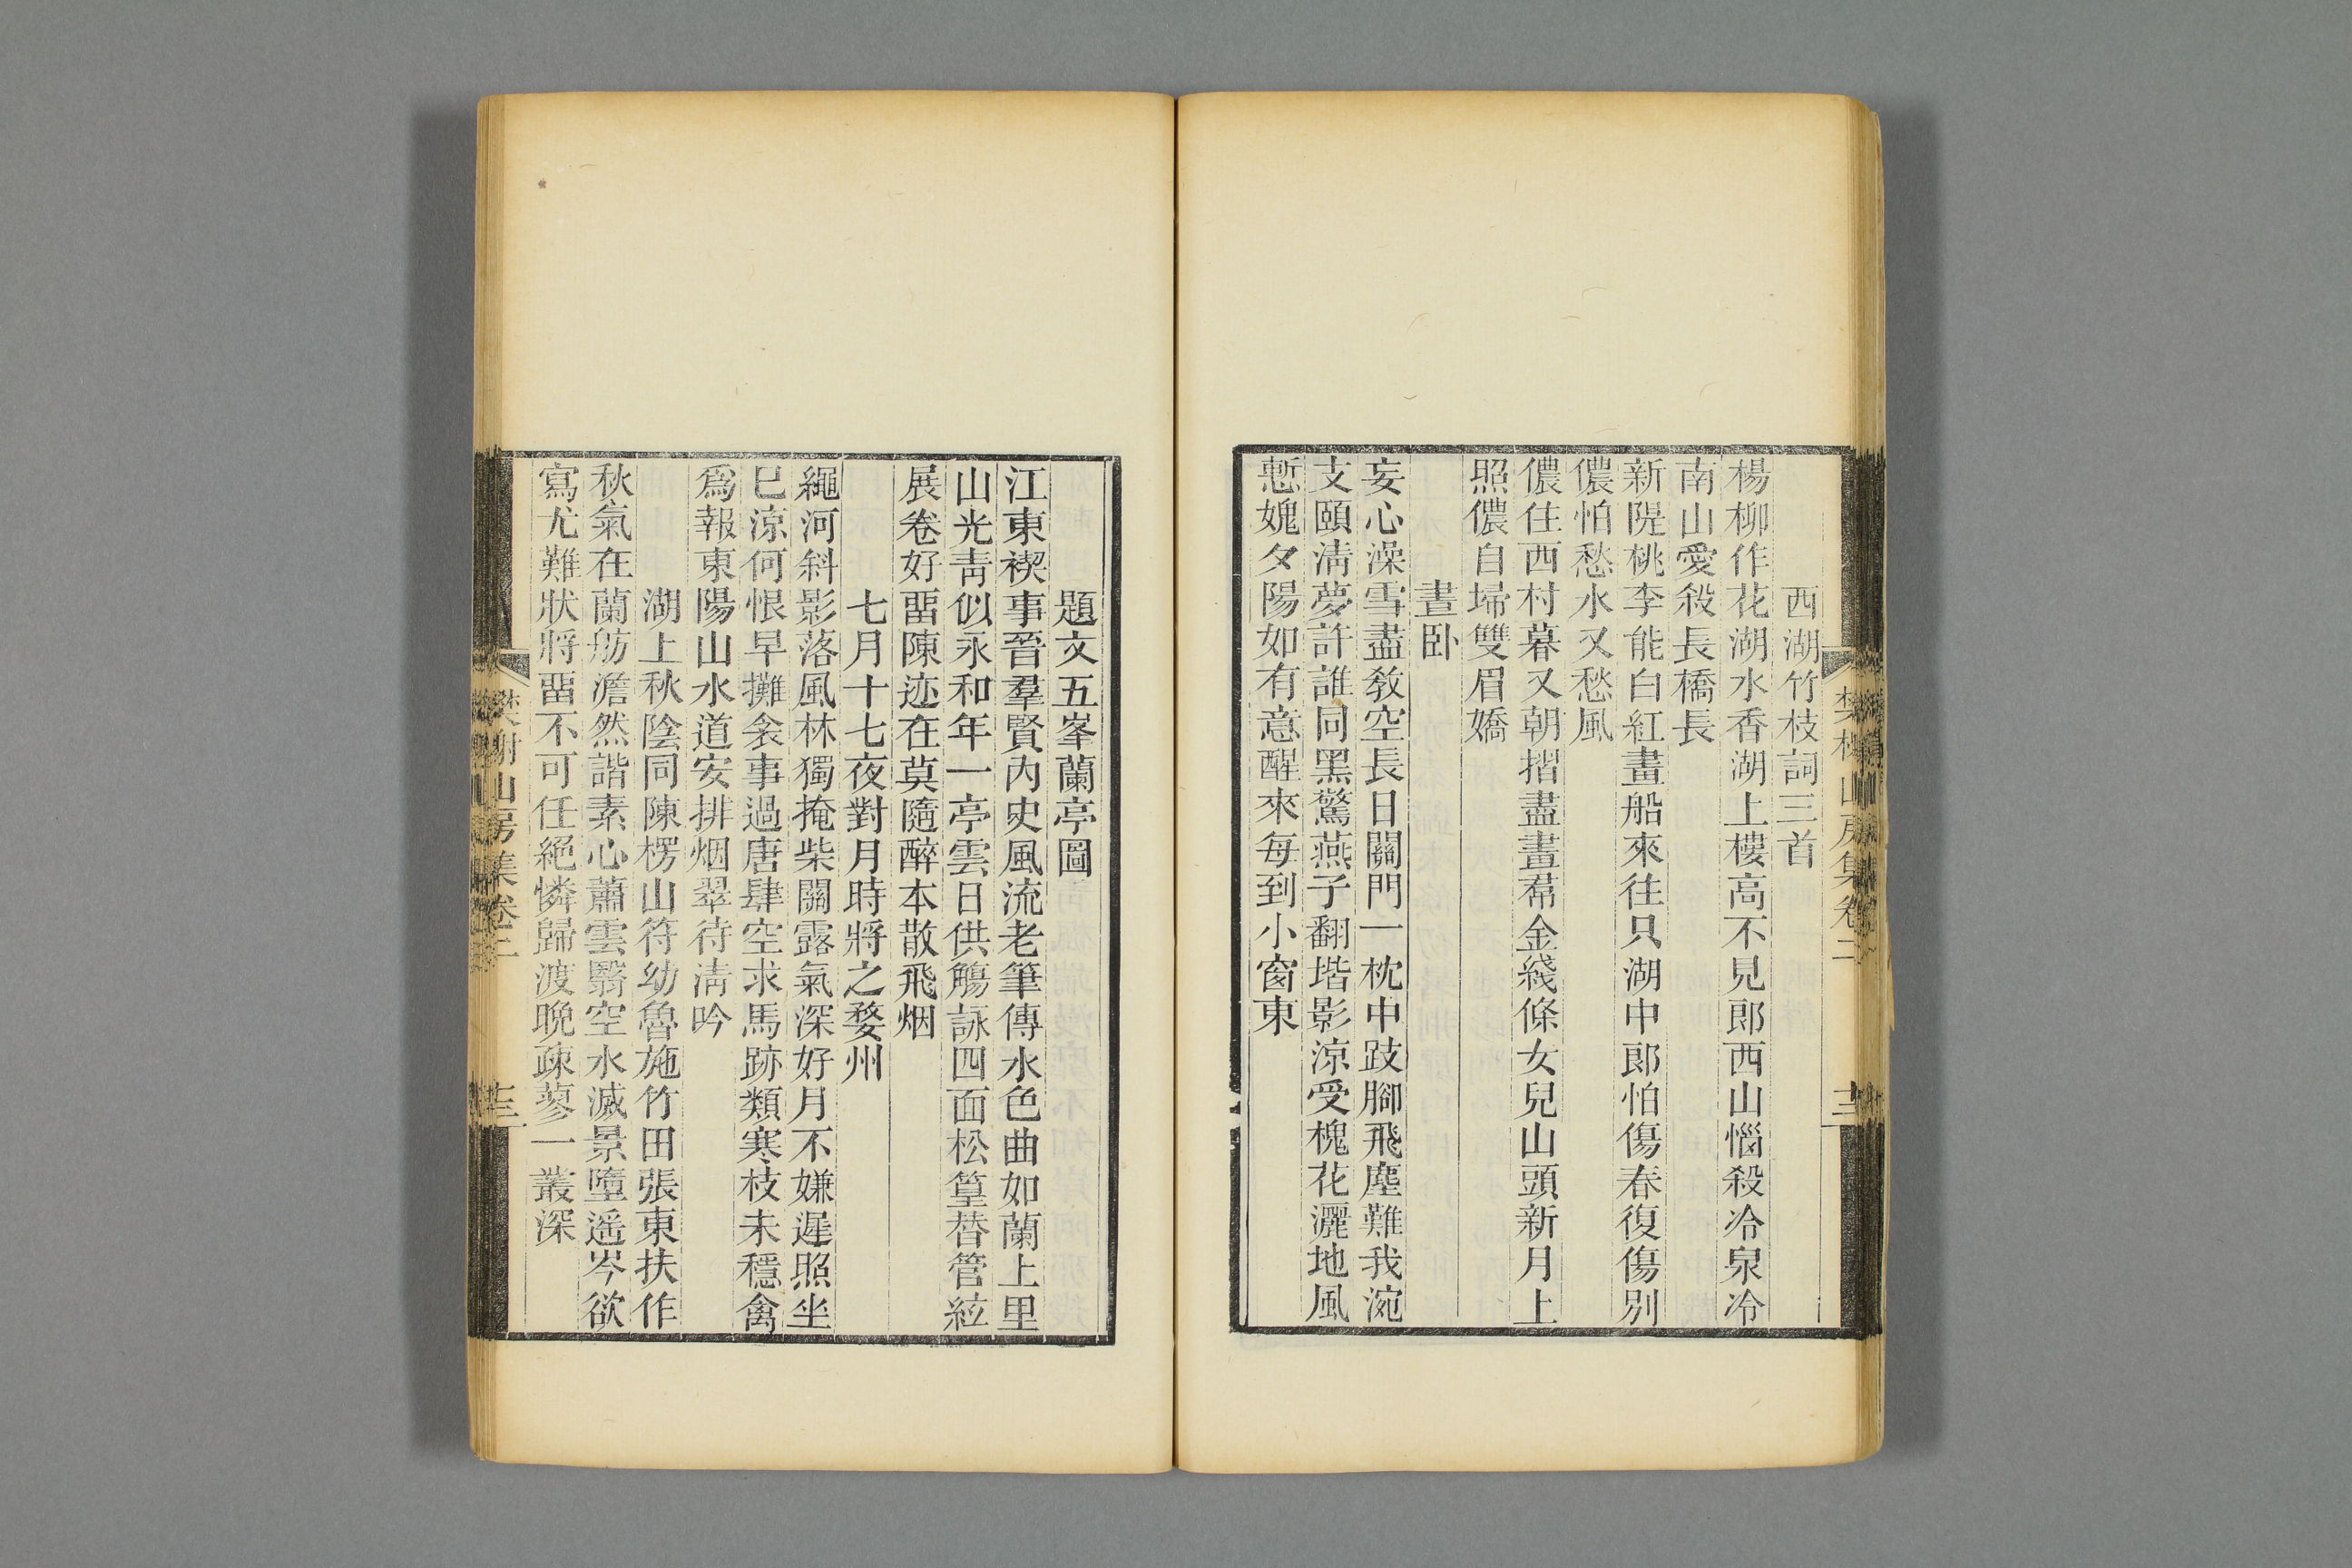 西湖竹枝詞三首
楊柳作花湖水香湖上樓高不見郎西山惱殺冷泉冷
南山愛殺長橋長
新隄桃李能白紅畫船來往只湖中郎怕傷春復傷別
儂怕愁水又愁風
儂住西村暮又朝摺盡畫帬金綫條女兒山頭新月上
照儂自埽雙眉嬌
晝卧
妄心澡雪盡教空長日關門一枕中跂腳飛塵難我涴
支頤淸夢許誰同黑驚燕子翻堦影涼受槐花灑地風
慙媿夕陽如有意醒來每到小窗東
樊榭山房集卷二
題文五峯蘭亭圖
江東禊事晉羣賢內史風流老筆傳水色曲如蘭上里
山光靑似永和年一亭雲日供觴詠四面松篁替管絃
展卷好畱陳迹在莫隨醉本散飛烟
七月十七夜對月時將之婺州
繩河斜影落風林獨掩柴關露氣深好月不嫌遲照坐
巳涼何恨早攤衾事過唐肆空求馬跡類寒枝未穩禽
爲報東陽山水道安排烟翠待淸吟
湖上秋陰同陳楞山符幼魯施竹田張東扶作
秋氣在蘭舫澹然諧素心蕭雲翳空水滅景墮遥岑欲
寫尤難狀將畱不可任絕憐歸渡晚疎蓼一叢深
樊榭山房集卷二
十三